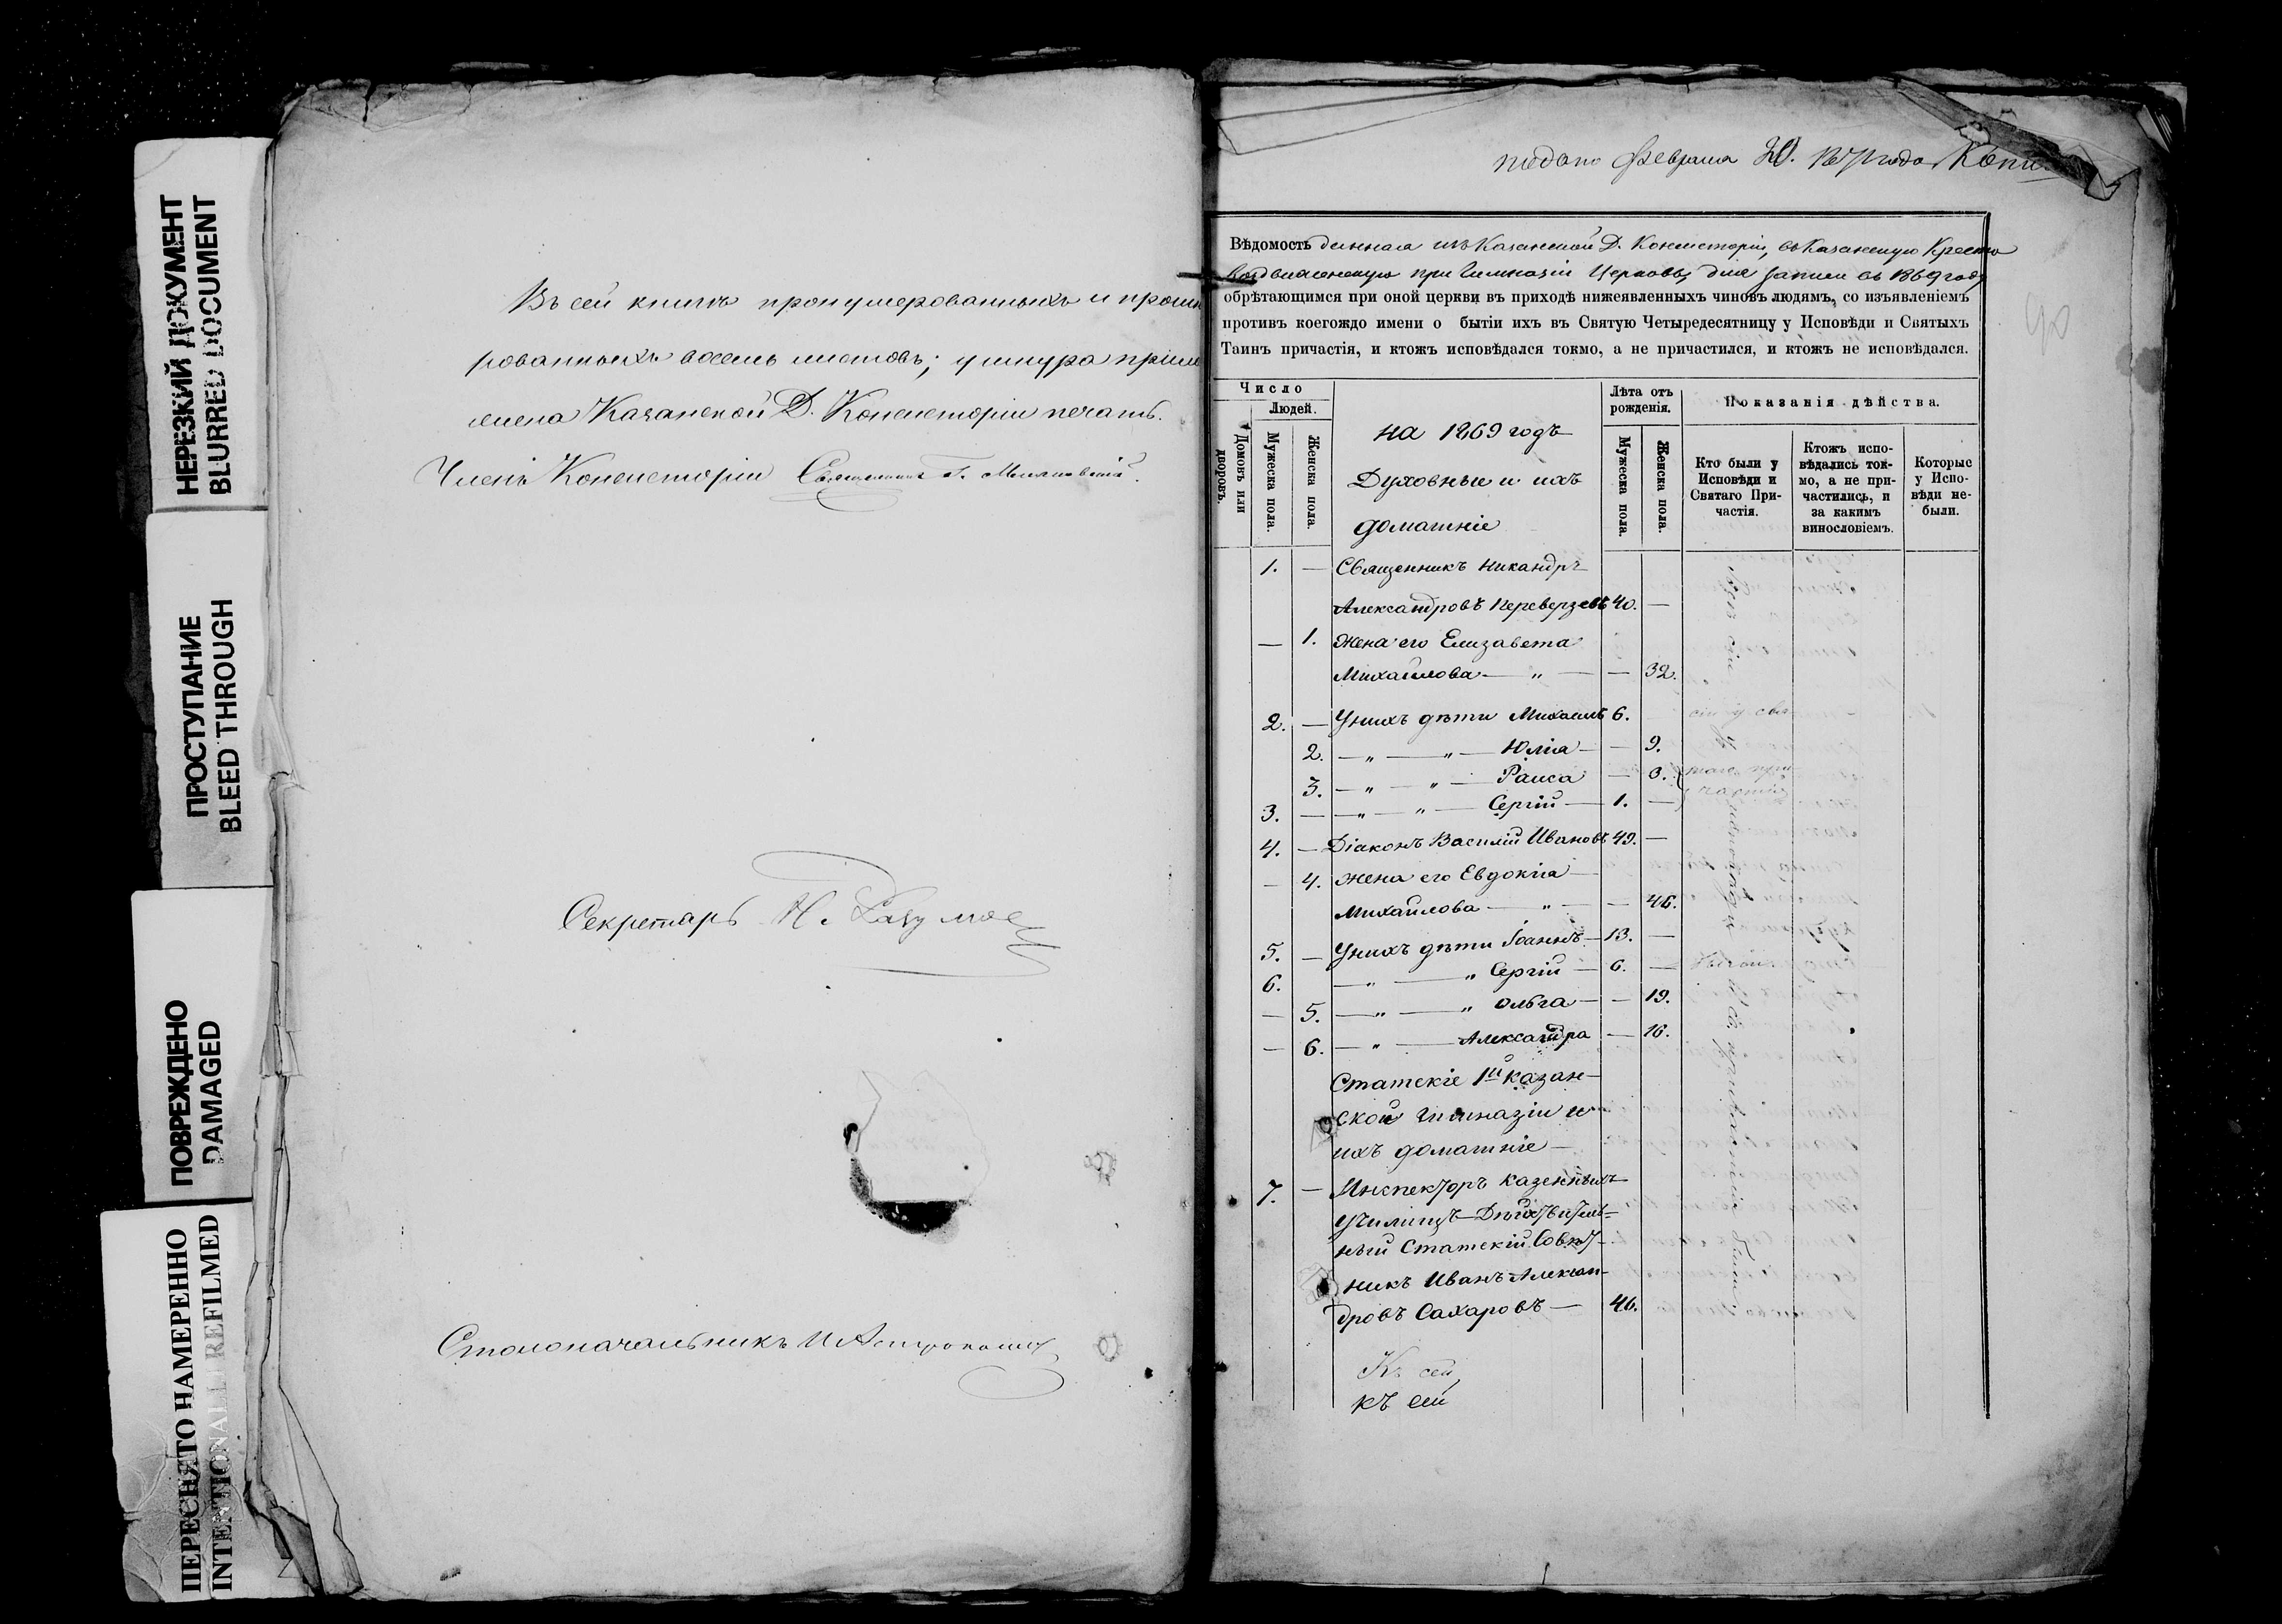 НЕРЕЗКИЙ ДОКУМЕНТ
BLURRED DOCUMENT
ПРОСТУПАНИЕ
BLEED THROUGH
ПОВРЕЖДЕНО
DAMAGED
ПЕРЕСНЯТО НАМЕРЕННО
INTENTIONALLY REFILMED
Въ сей книгѣ пронумерованныхъ и прошну
рованныхъ восемь листовъ; у шнура прило
жена Казанской Д. Консисторіи печать.
Членъ Консисторіи Священникъ
Секретарь Н.
Столоначальникъ И
подано Февраля 20. года
Вѣдомость данная изъ Казанской Д. Консисторіи, въ Казанскую Кресто
воздвиженскую при Гимназіи Церковь, для записи въ 1869 году
обрѣтающимся при оной церкви въ приходѣ нижеявленныхъ чиновъ людямъ, со изъявленіемъ
противъ коегождо имени о бытіи ихъ въ Святую Четыредесятницу у Исповѣди и Святыхъ
Таинъ причастія, и ктожъ исповѣдался токмо, а не причастился, и ктожъ не исповѣдался.
Число
Людей.
Домовъ или дворовъ.
Мужеска пола.
Женска пола.
на 1869 годъ
Духовные и ихъ
домашніе
Лѣта отъ рожденія.
Мужеска пола.
Женска пола.
Показанія дѣйства.
Кто были у Исповѣди и Святаго Причастія.
Ктожъ исповѣдались токмо, а не причастились, и за какимъ винословіемъ.
Которые у Исповѣди небыли.
1. — Священникъ Никандръ
Александровъ Переверзевъ 40. —
— 1. Жена его Елизавета
Михайлова — „ — — 32.
2. — У нихъ дѣти Михаилъ 6.
2. — „ — „ — Юлія — — 9.
3. — „ — „ — Раиса — 3.
3. — — „ — „ — Сергій — 1. —
4. — Діаконъ Василій Ивановъ 49. —
— 4. Жена его Евдокія —
Михайлова — „ — — 46.
5. — У нихъ дѣти Іоаннъ — 13. —
6. — „ — „ Сергій — 6. —
— 5. — „ — „ Ольга — — 19.
— 6. — „ — Александра — 16.
Статскіе 1й Казан-
ской гимназіи и
ихъ домашніе —
7. — Инспекторъ казенныхъ
училищъ — Дѣйствитель-
ный Статскій Совѣт-
никъ Иванъ Алексан-
дровъ Сахаровъ — 46.
Къ сей
къ сей